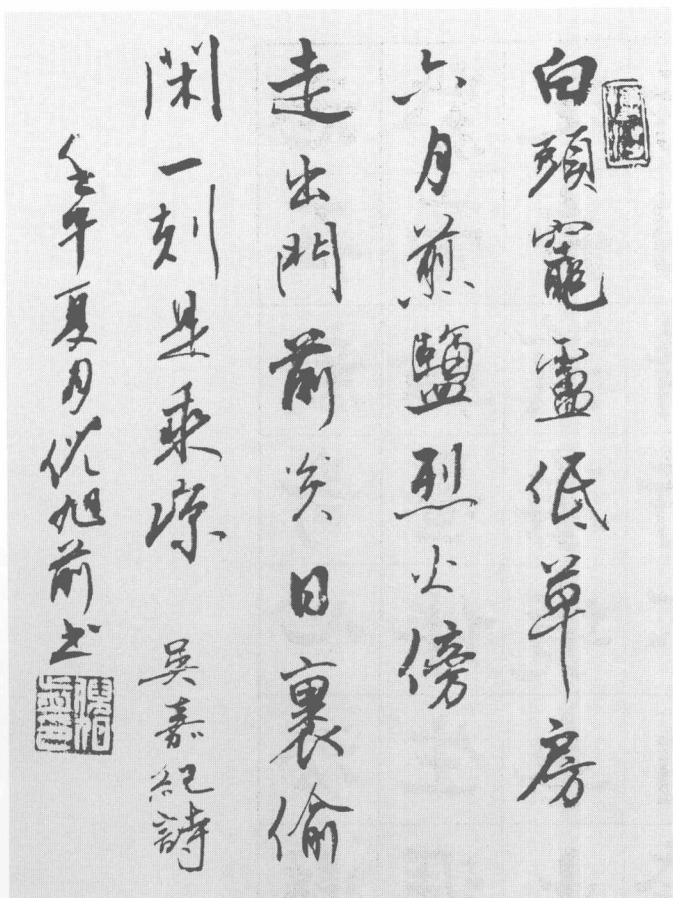 白頭竈盧低草房
六月煎鹽烈火傍
走出門前炎日裏偷
閑一刻是乘涼 吳嘉紀詩
壬午夏月倪旭前書